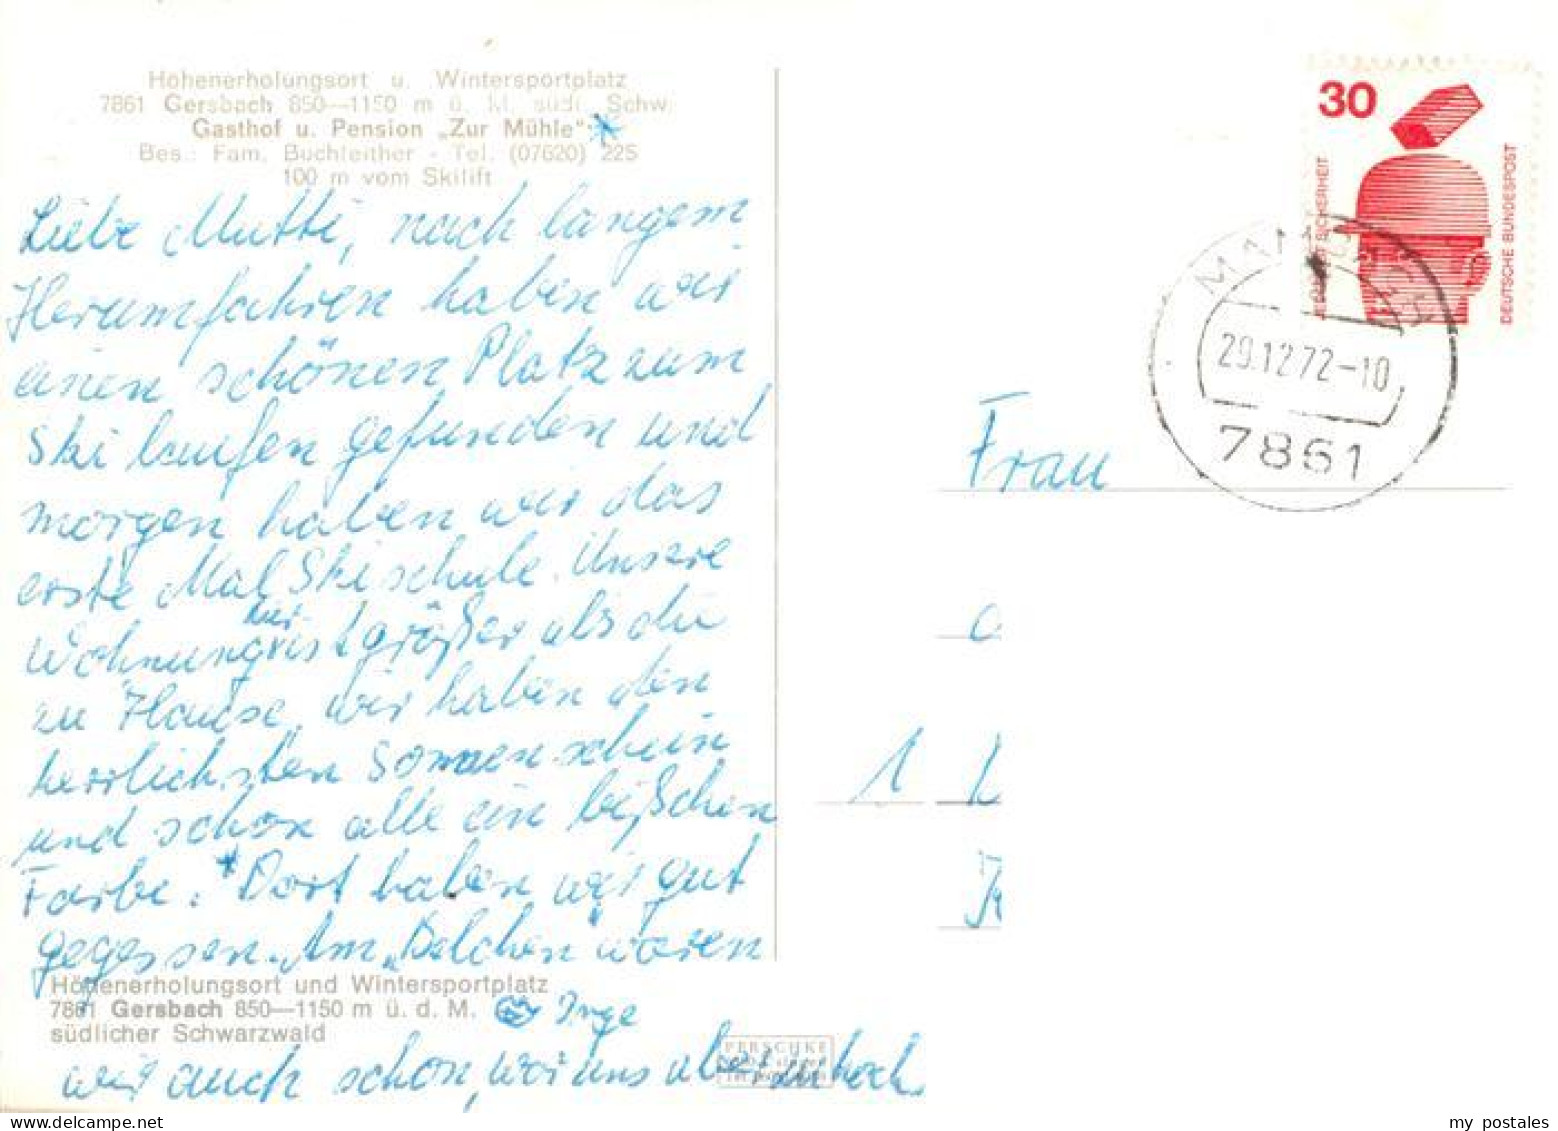 Höhenerholungsort u. Wintersportplatz
7861 Gersbach 850—1150 m ü. M. südl. Schw.
Gasthof u. Pension „Zur Mühle" *
Bes.: Fam. Buchleither - Tel. (07620) 225
100 m vom Skilift
Liebe Mutti, nach langem
Herumfahren haben wir
einen schönen Platz zum
Ski laufen gefunden und
morgen haben wir das
erste Mal Skischule. Unsere
Wohnung hier ist größer als die
zu Hause, wir haben den
herrlichsten Sonnenschein
und schon alle ein bißchen
Farbe. * Dort haben wir gut
gegessen. Am „Belchen" waren
Höhenerholungsort und Wintersportplatz
7861 Gersbach 850—1150 m ü. d. M.
südlicher Schwarzwald
Inge
wir auch schon, war uns aber zu hoch.
30
JEDERZEIT SICHERHEIT
DEUTSCHE BUNDESPOST
29.12.72-10
7861
Frau
1
my postales
delcampe.net